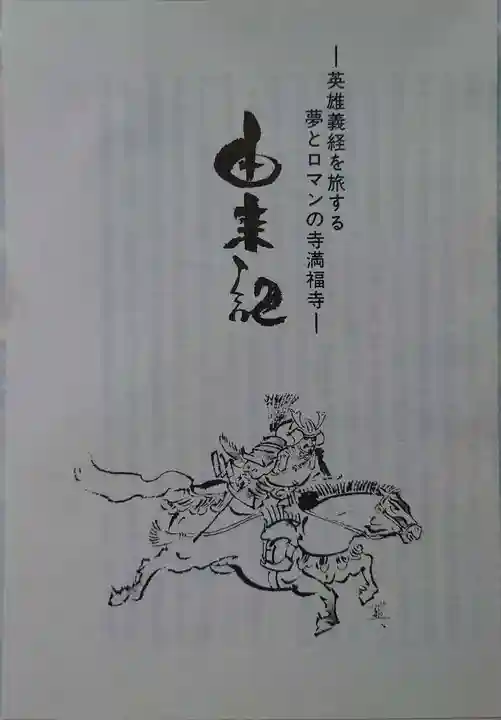 ―英雄義経を旅する
夢とロマンの寺満福寺―
由来記